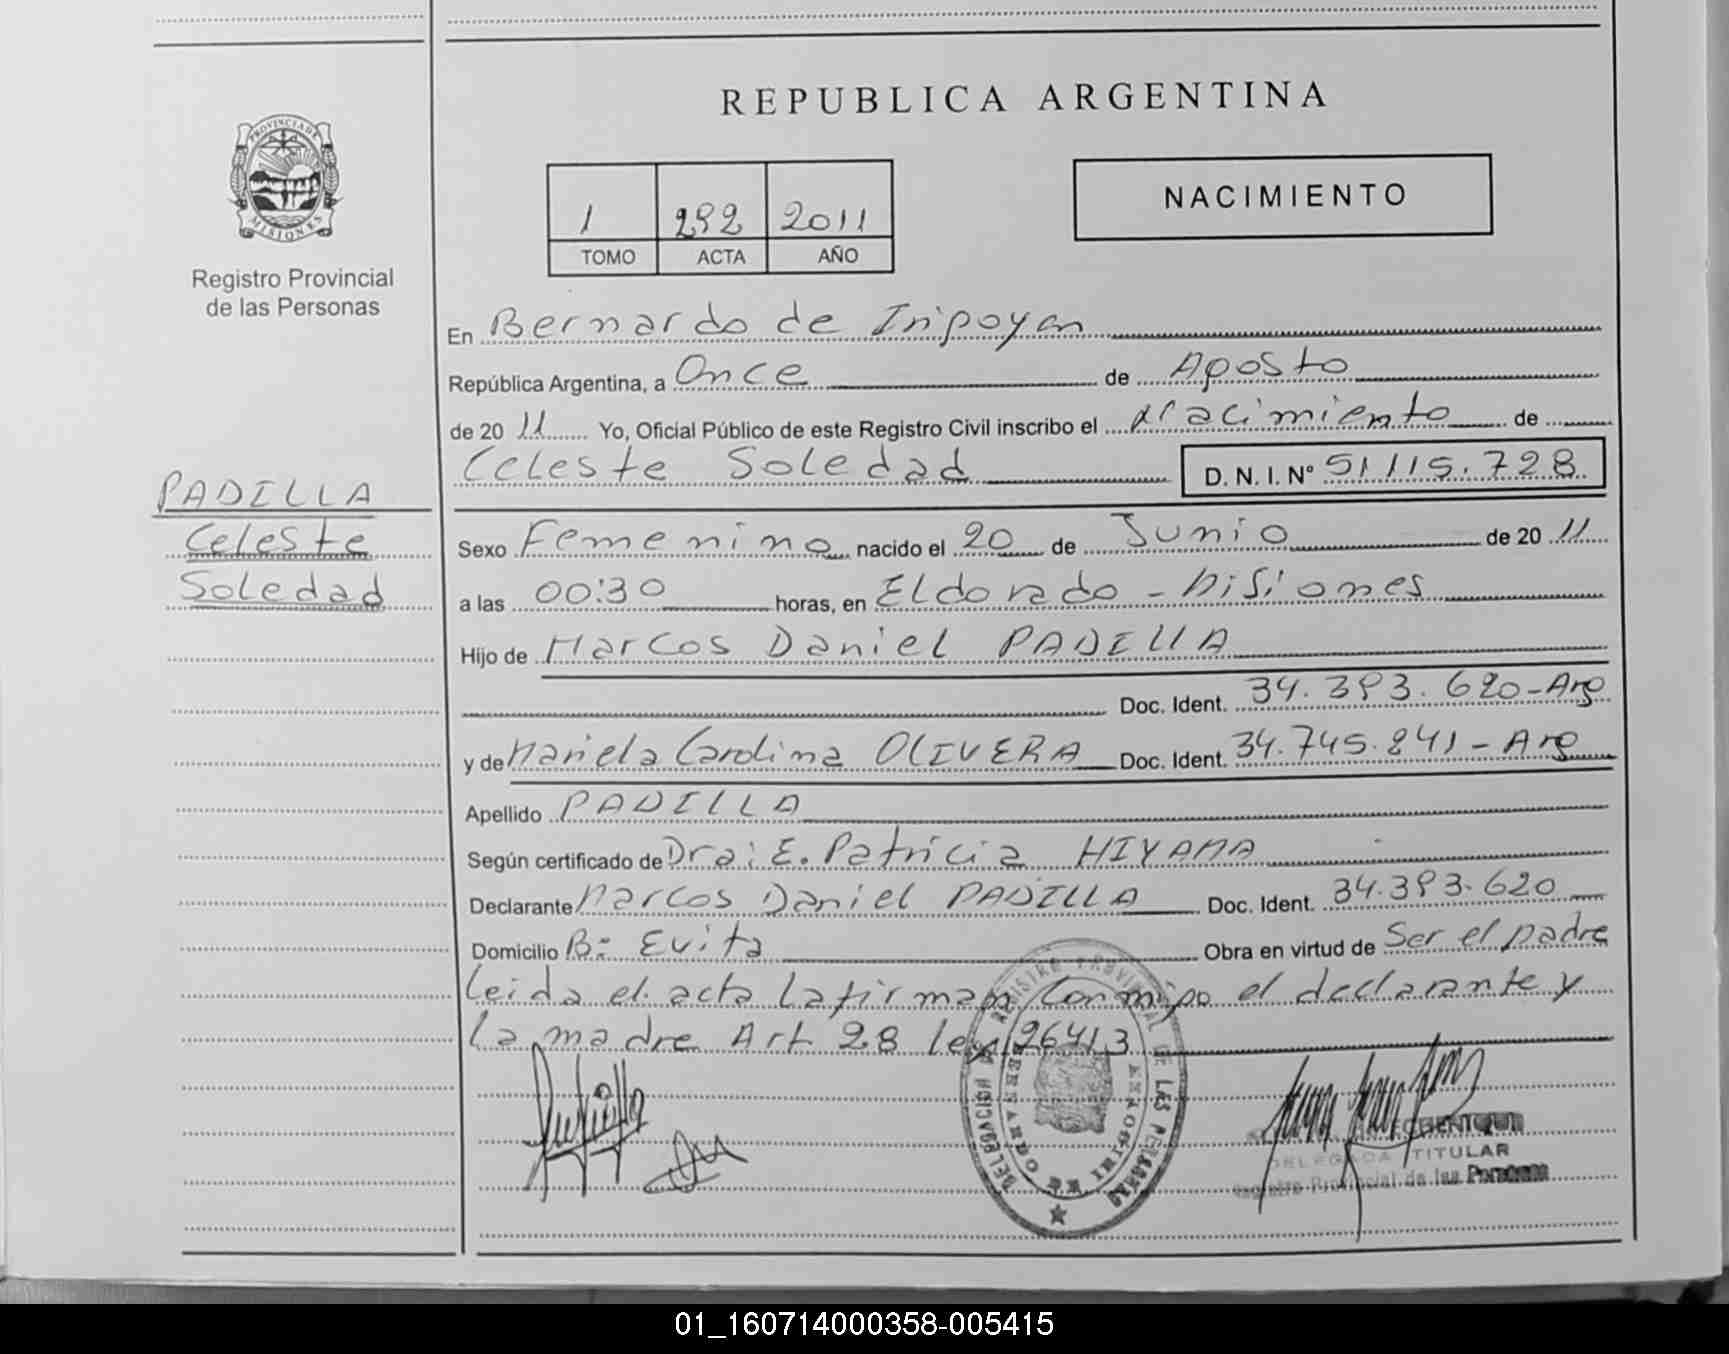 REPUBLICA ARGENTINA
PROVINCIA DE
MISIONES
Registro Provincial
de las Personas
NACIMIENTO
1 292 2011
TOMO ACTA AÑO
En Bernardo de Iripoyen
República Argentina, a Once de Agosto
de 2011 Yo, Oficial Público de este Registro Civil inscribo el Nacimiento de
Celeste Soledad D. N. I. Nº 51.115.728
PADILLA
Celeste
Soledad
Sexo Femenino nacido el 20 de Junio de 2011
a las 00:30 horas, en Eldorado - Misiones
Hijo de Marcos Daniel PADILLA
Doc. Ident. 34.393.620-Arg
y de Mariela Carolina OLIVERA Doc. Ident. 34.745.241-Arg
Apellido PADILLA
Según certificado de Dra: E. Patricia HIYAMA
Declarante Marcos Daniel PADILLA Doc. Ident. 34.393.620
Domicilio Bº Evita Obra en virtud de Ser el padre
Leida el acta la firman conmigo el declarante y
la madre Art 28 ley 26413
DELEGACION DE REGISTRO PROVINCIAL DE LAS PERSONAS
BERNARDO DE IRIGOYEN
DELEGADA TITULAR
Registro Provincial de las Personas
01_160714000358-005415